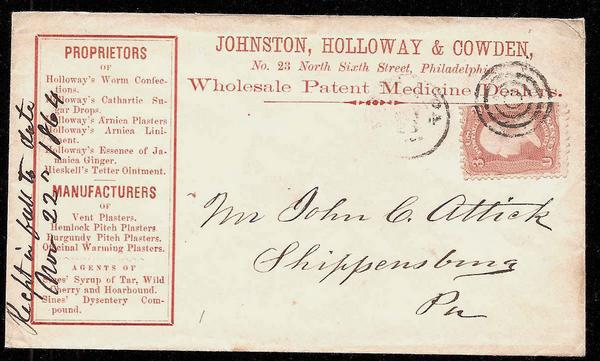 JOHNSTON, HOLLOWAY & COWDEN,
No. 23 North Sixth Street, Philadelphia
Wholesale Patent Medicine Dealers.
PROPRIETORS
OF
Holloway's Worm Confec-
tions.
Holloway's Cathartic Su-
gar Drops.
Holloway's Arnica Plasters
Holloway's Arnica Lini-
ment.
Holloway's Essence of Ja-
maica Ginger.
Hieskell's Tetter Ointment.
MANUFACTURERS
OF
Vent Plasters.
Hemlock Pitch Plasters
Burgundy Pitch Plasters.
Original Warming Plasters.
AGENTS OF
Sines' Syrup of Tar, Wild
Cherry and Hoarhound.
Sines' Dysentery Com-
pound.
Recpt in full to date
Nov 22 1864
Mr John C. Attick
Shippensburg
Pa
3 U